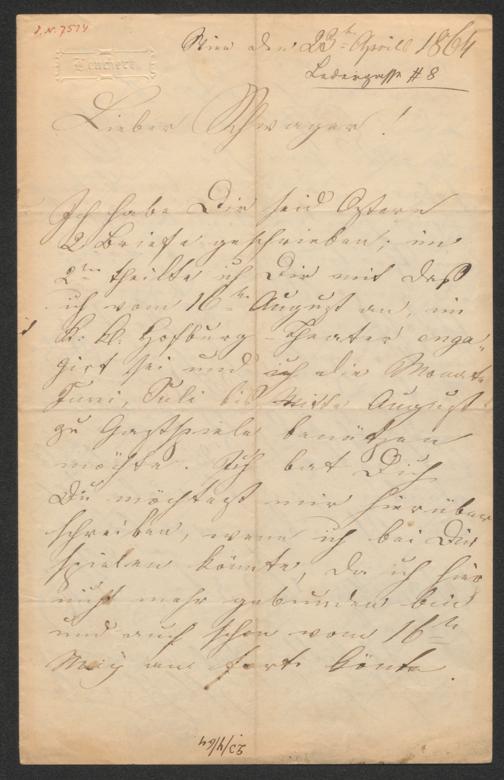 I.N. 7574
Teuchert.
Wien den 23t April 1864
Ledergasse # 8
Lieber Schwager!
Ich habe Dir seid Ostern
2 Briefe geschrieben; im
2ten theilte ich Dir mit daß
ich vom 16ten August an, im
K. K. Hofburg-Theater enga-
girt sei und ich die Monate
Juni, Juli bis Mitte August
zu Gastspiele benützen
möchte. Ich bat Dich
Du möchtest mir hierüber
schreiben, wenn ich bei Dir
spielen könnte, da ich hier
nicht mehr gebunden bin
und auch schon vom 16ten
May an fort könte.
23/4/64